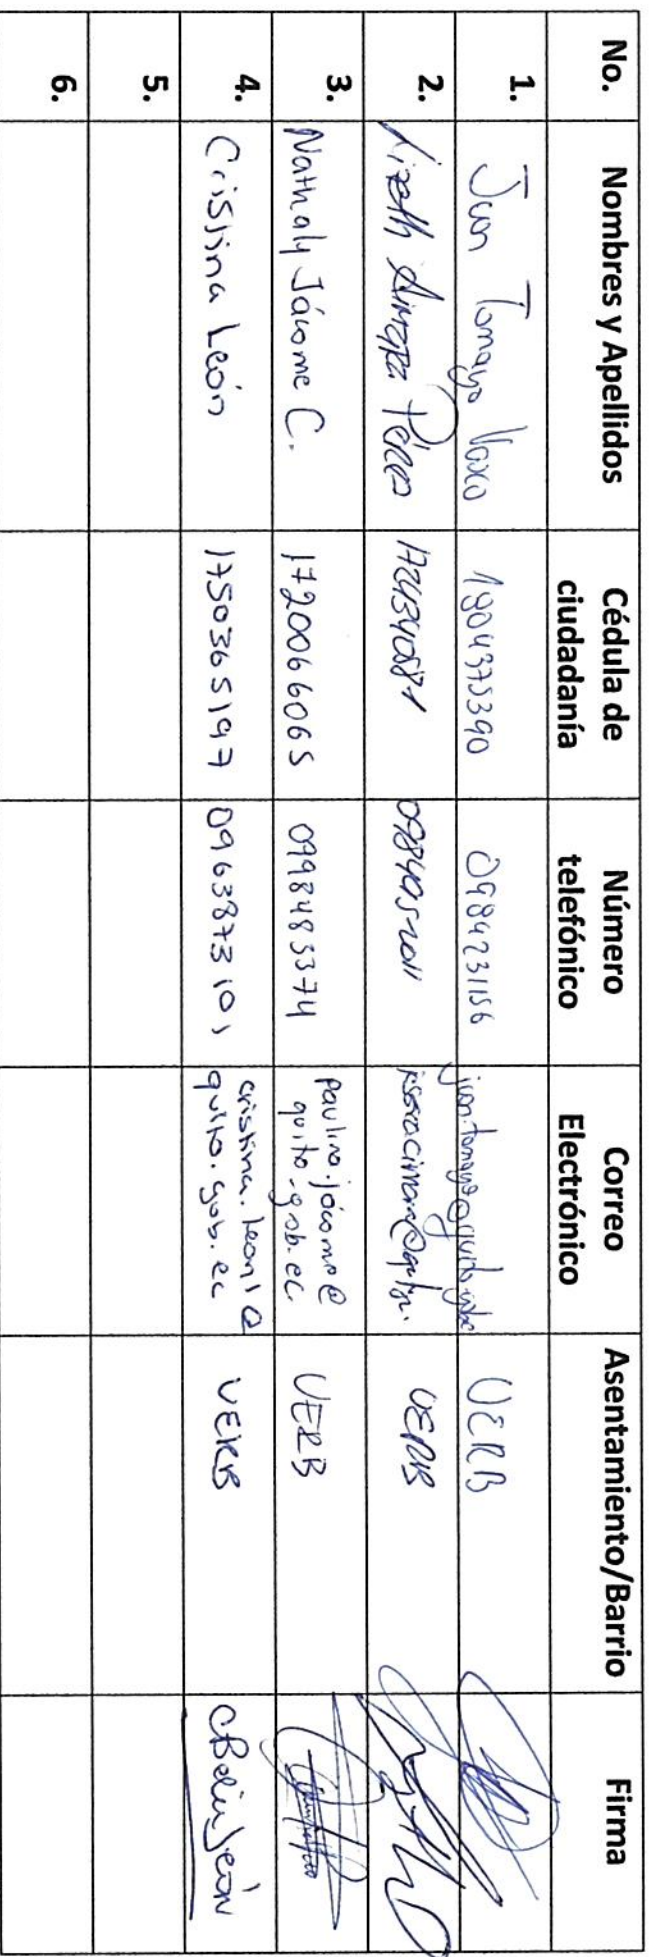 No. Nombres y Apellidos Cédula de ciudadanía Número telefónico Correo Electrónico Asentamiento/Barrio Firma
1. Juan Tamayo Vasco 1804375390 0984231156 juan.tamayo@quito.gob.ec UERB
2. Lizeth Pérez 1724340581 UERB
3. Nathaly Jácome C. 1720066065 0998483374 paulina.jácome@
quito.gob.ec UERB
4. Cristina León 1750365197 0963873101 cristina.leon1@
quito.gob.ec UERB
5.
6.